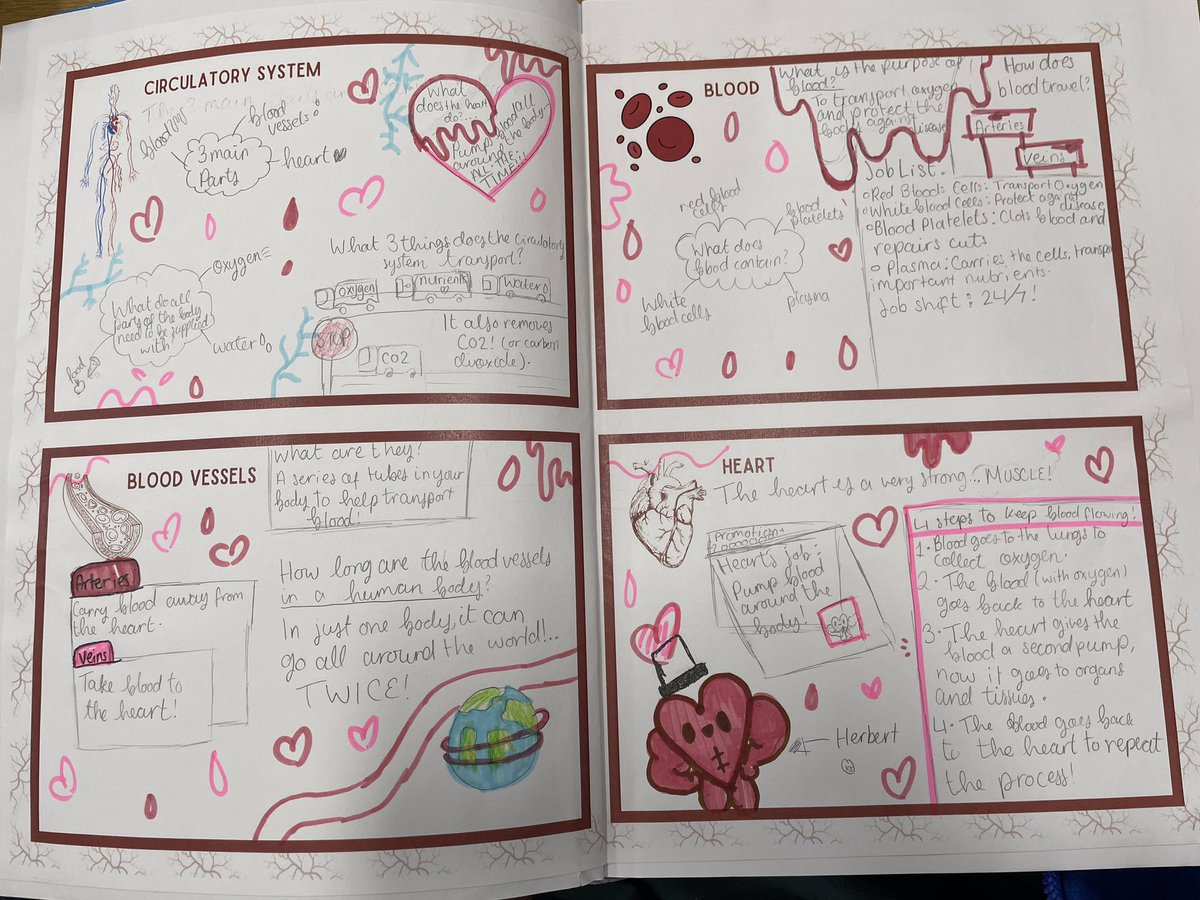 CIRCULATORY SYSTEM
3 main
Parts
blood
blood
vessels
heart
What
does the heart
do...
Pump blood all
around the body
ALL THE
TIME!!
What do all
parts of the body
need to be supplied
with?
Oxygen
water
food
What 3 things does the circulatory
system transport?
Oxygen
nutrients
Water
STOP
CO2
It also removes
CO2! (or carbon
dioxide).
BLOOD
What is the purpose of
blood?
To transport oxygen
and protect the
body against
disease
How does
blood travel?
Arteries
Veins
What does
blood contain?
red blood
cells
blood
platelets
White
blood cells
plasma
Job List:
Red Blood Cells: Transport Oxygen
White blood Cells: Protect against
disease
Blood Platelets: Clots blood and
repairs cuts
Plasma: Carries the cells, transport
important nutrients.
Job shift: 24/7!
BLOOD VESSELS
What are they?
A series of tubes in your
body to help transport
blood!
Arteries
Carry blood away from
the heart.
Veins
Take blood to
the heart!
How long are the blood vessels
in a human body?
In just one body, it can
go all around the world!..
TWICE!
HEART
The heart is a very strong... MUSCLE!
promotion:
Heart's job:
Pump blood
around the
body!
Herbert
4 steps to keep blood flowing!
1. Blood goes to the lungs to
collect oxygen.
2. The blood (with oxygen)
goes back to the heart
3. The heart gives the
blood a second pump,
now it goes to organs
and tissues.
4. The blood goes back
to the heart to repeat
the process!